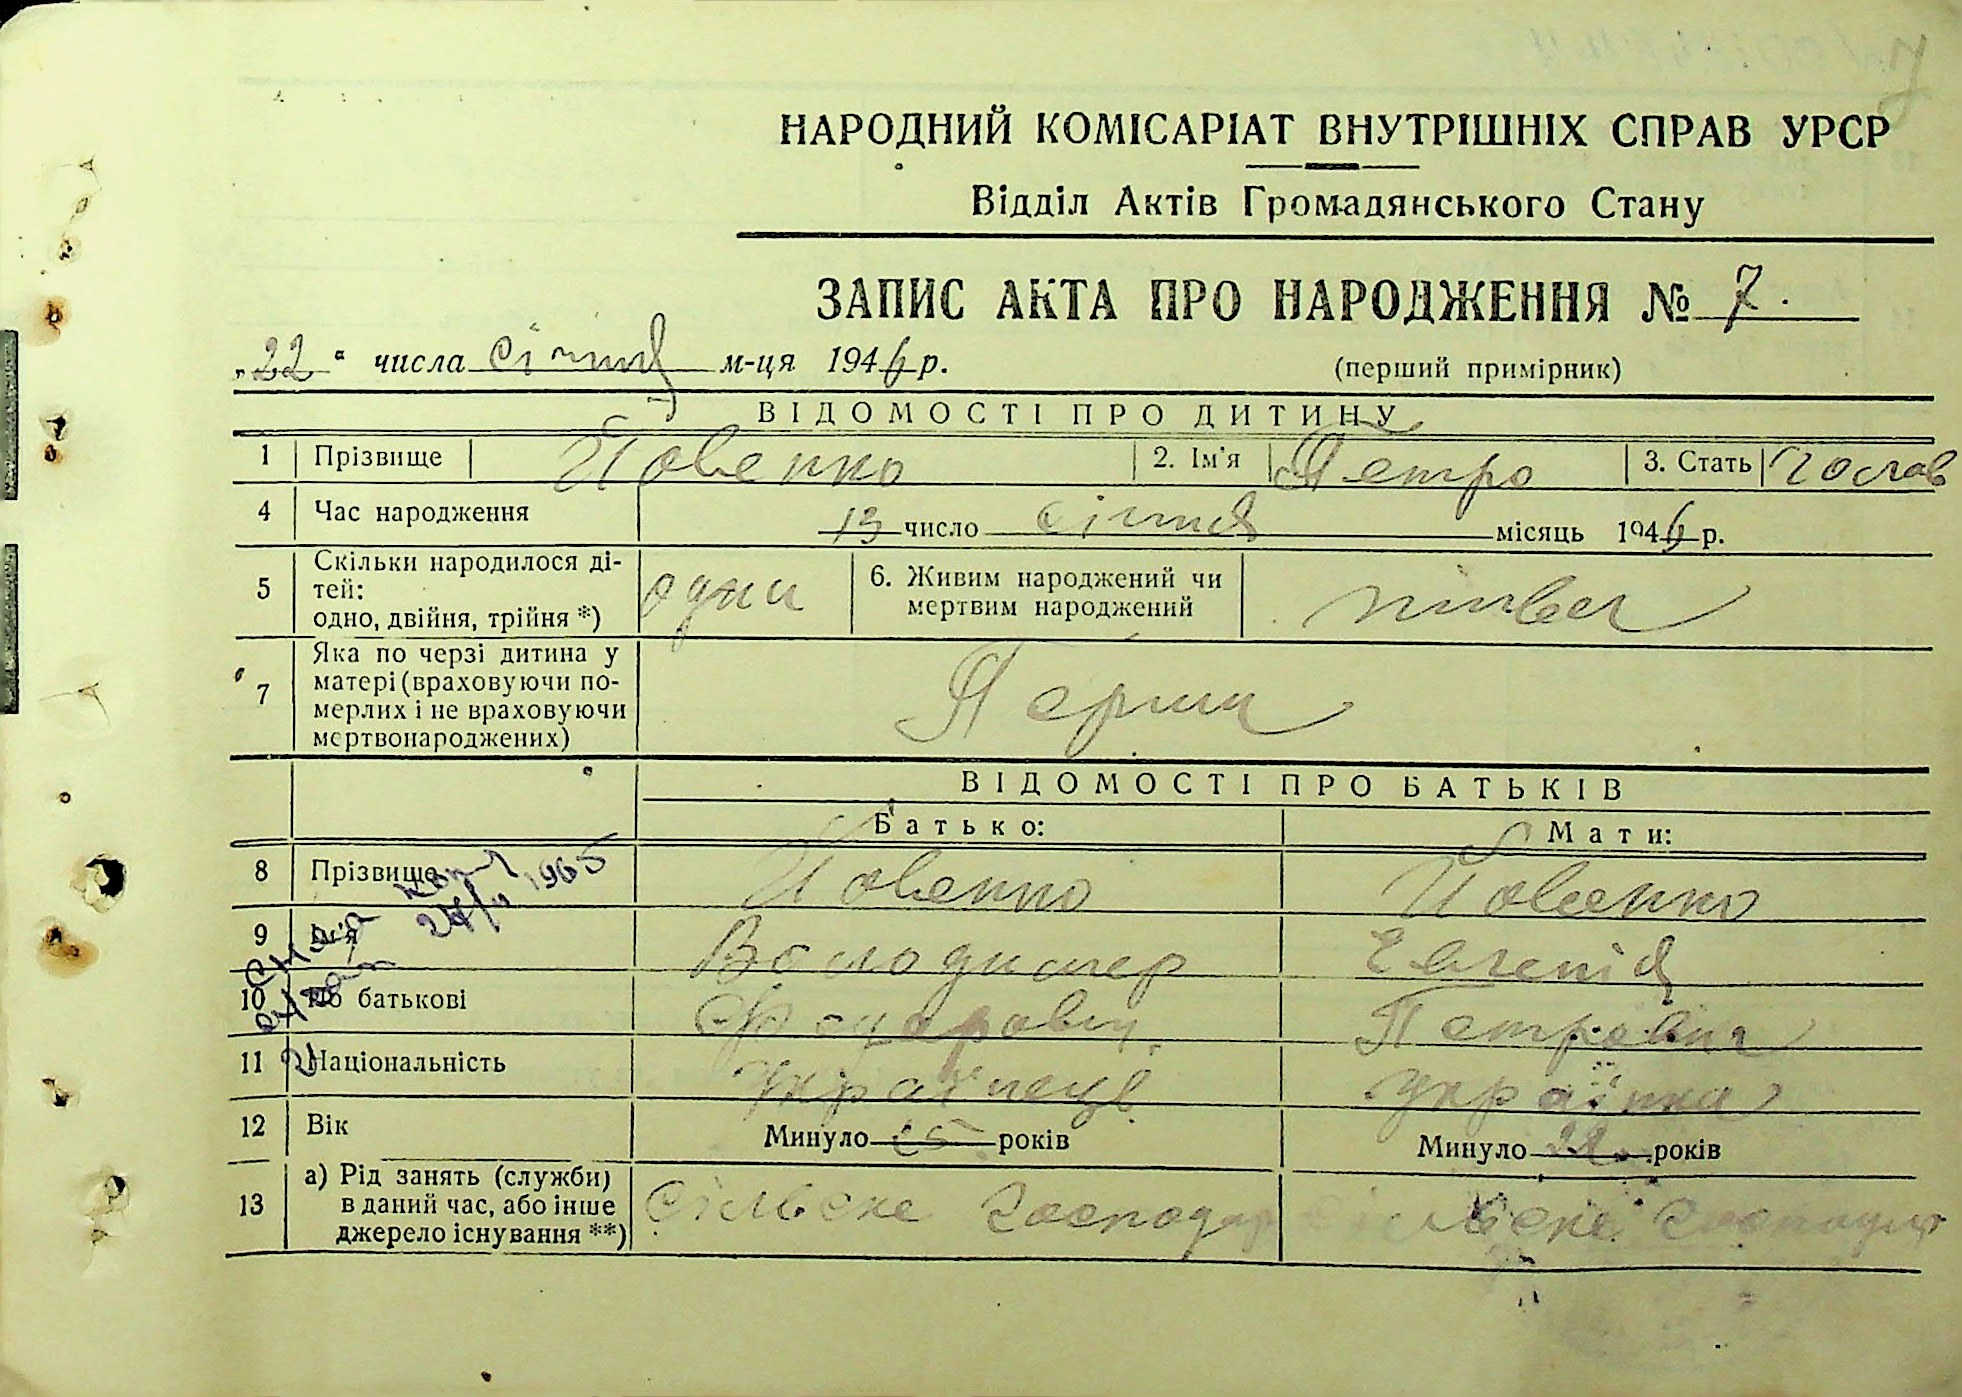 НАРОДНИЙ КОМІСАРІАТ ВНУТРІШНІХ СПРАВ УРСР
Відділ Актів Громадянського Стану
ЗАПИС АКТА ПРО НАРОДЖЕННЯ № 7.
„22“ числа січня м-ця 1946 р. (перший примірник)
ВІДОМОСТІ ПРО ДИТИНУ
1 Прізвище Йовенко 2. Ім'я Петро 3. Стать
4 Час народження 13 число січня місяць 1946 р.
5 Скільки народилося ді-
тей:
одно, двійня, трійня *) 6. Живим народжений чи
мертвим народжений
7 Яка по черзі дитина у
матері (враховуючи по-
мерлих і не враховуючи
мертвонароджених)
ВІДОМОСТІ ПРО БАТЬКІВ
Батько: Мати:
8 Прізвище Йовенко Йовенко
24/II 1965
9 Ім'я Володимер Евгенія
10 По батькові Федорович Петровна
11 Національність Українець Українка
12 Вік Минуло років Минуло 22 років
13 а) Рід занять (служби)
в даний час, або інше
джерело існування **) Сільске господар